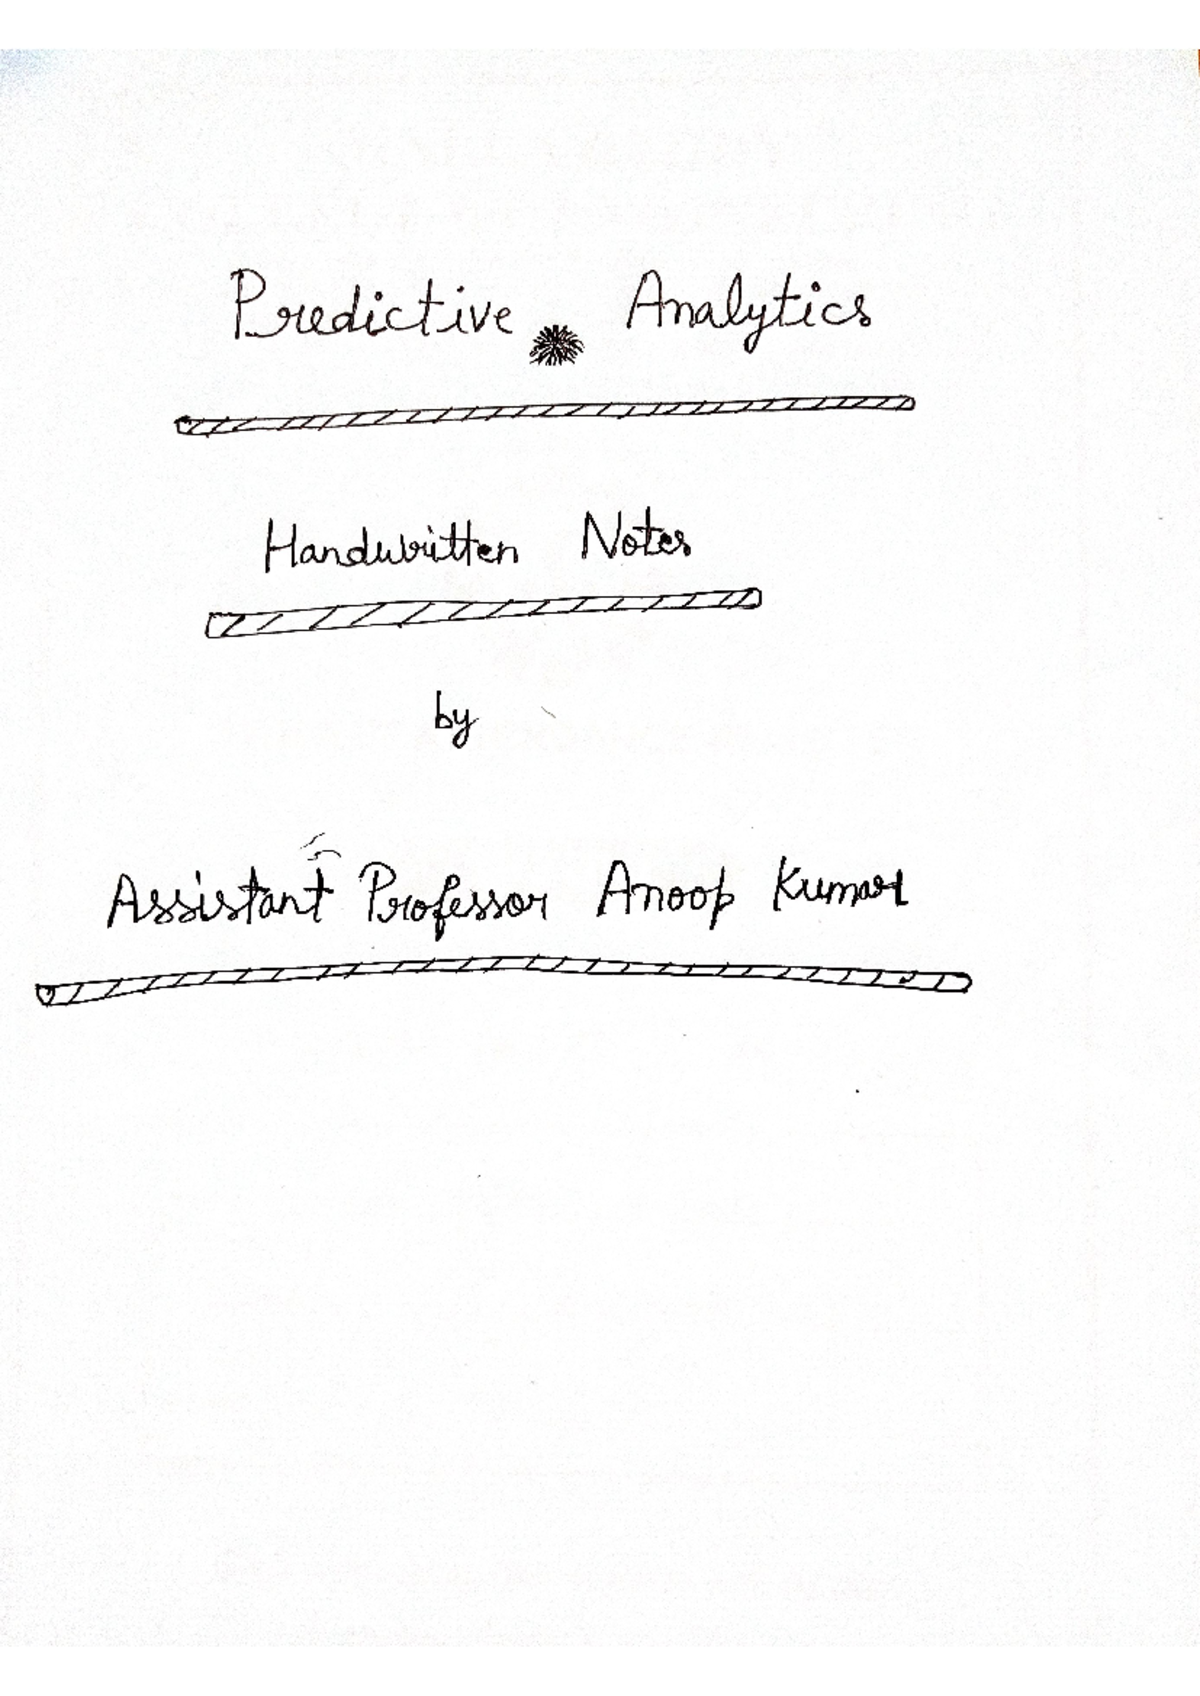 Predictive Analytics
Handwritten Notes
by
Assistant Professor Anoop Kumar